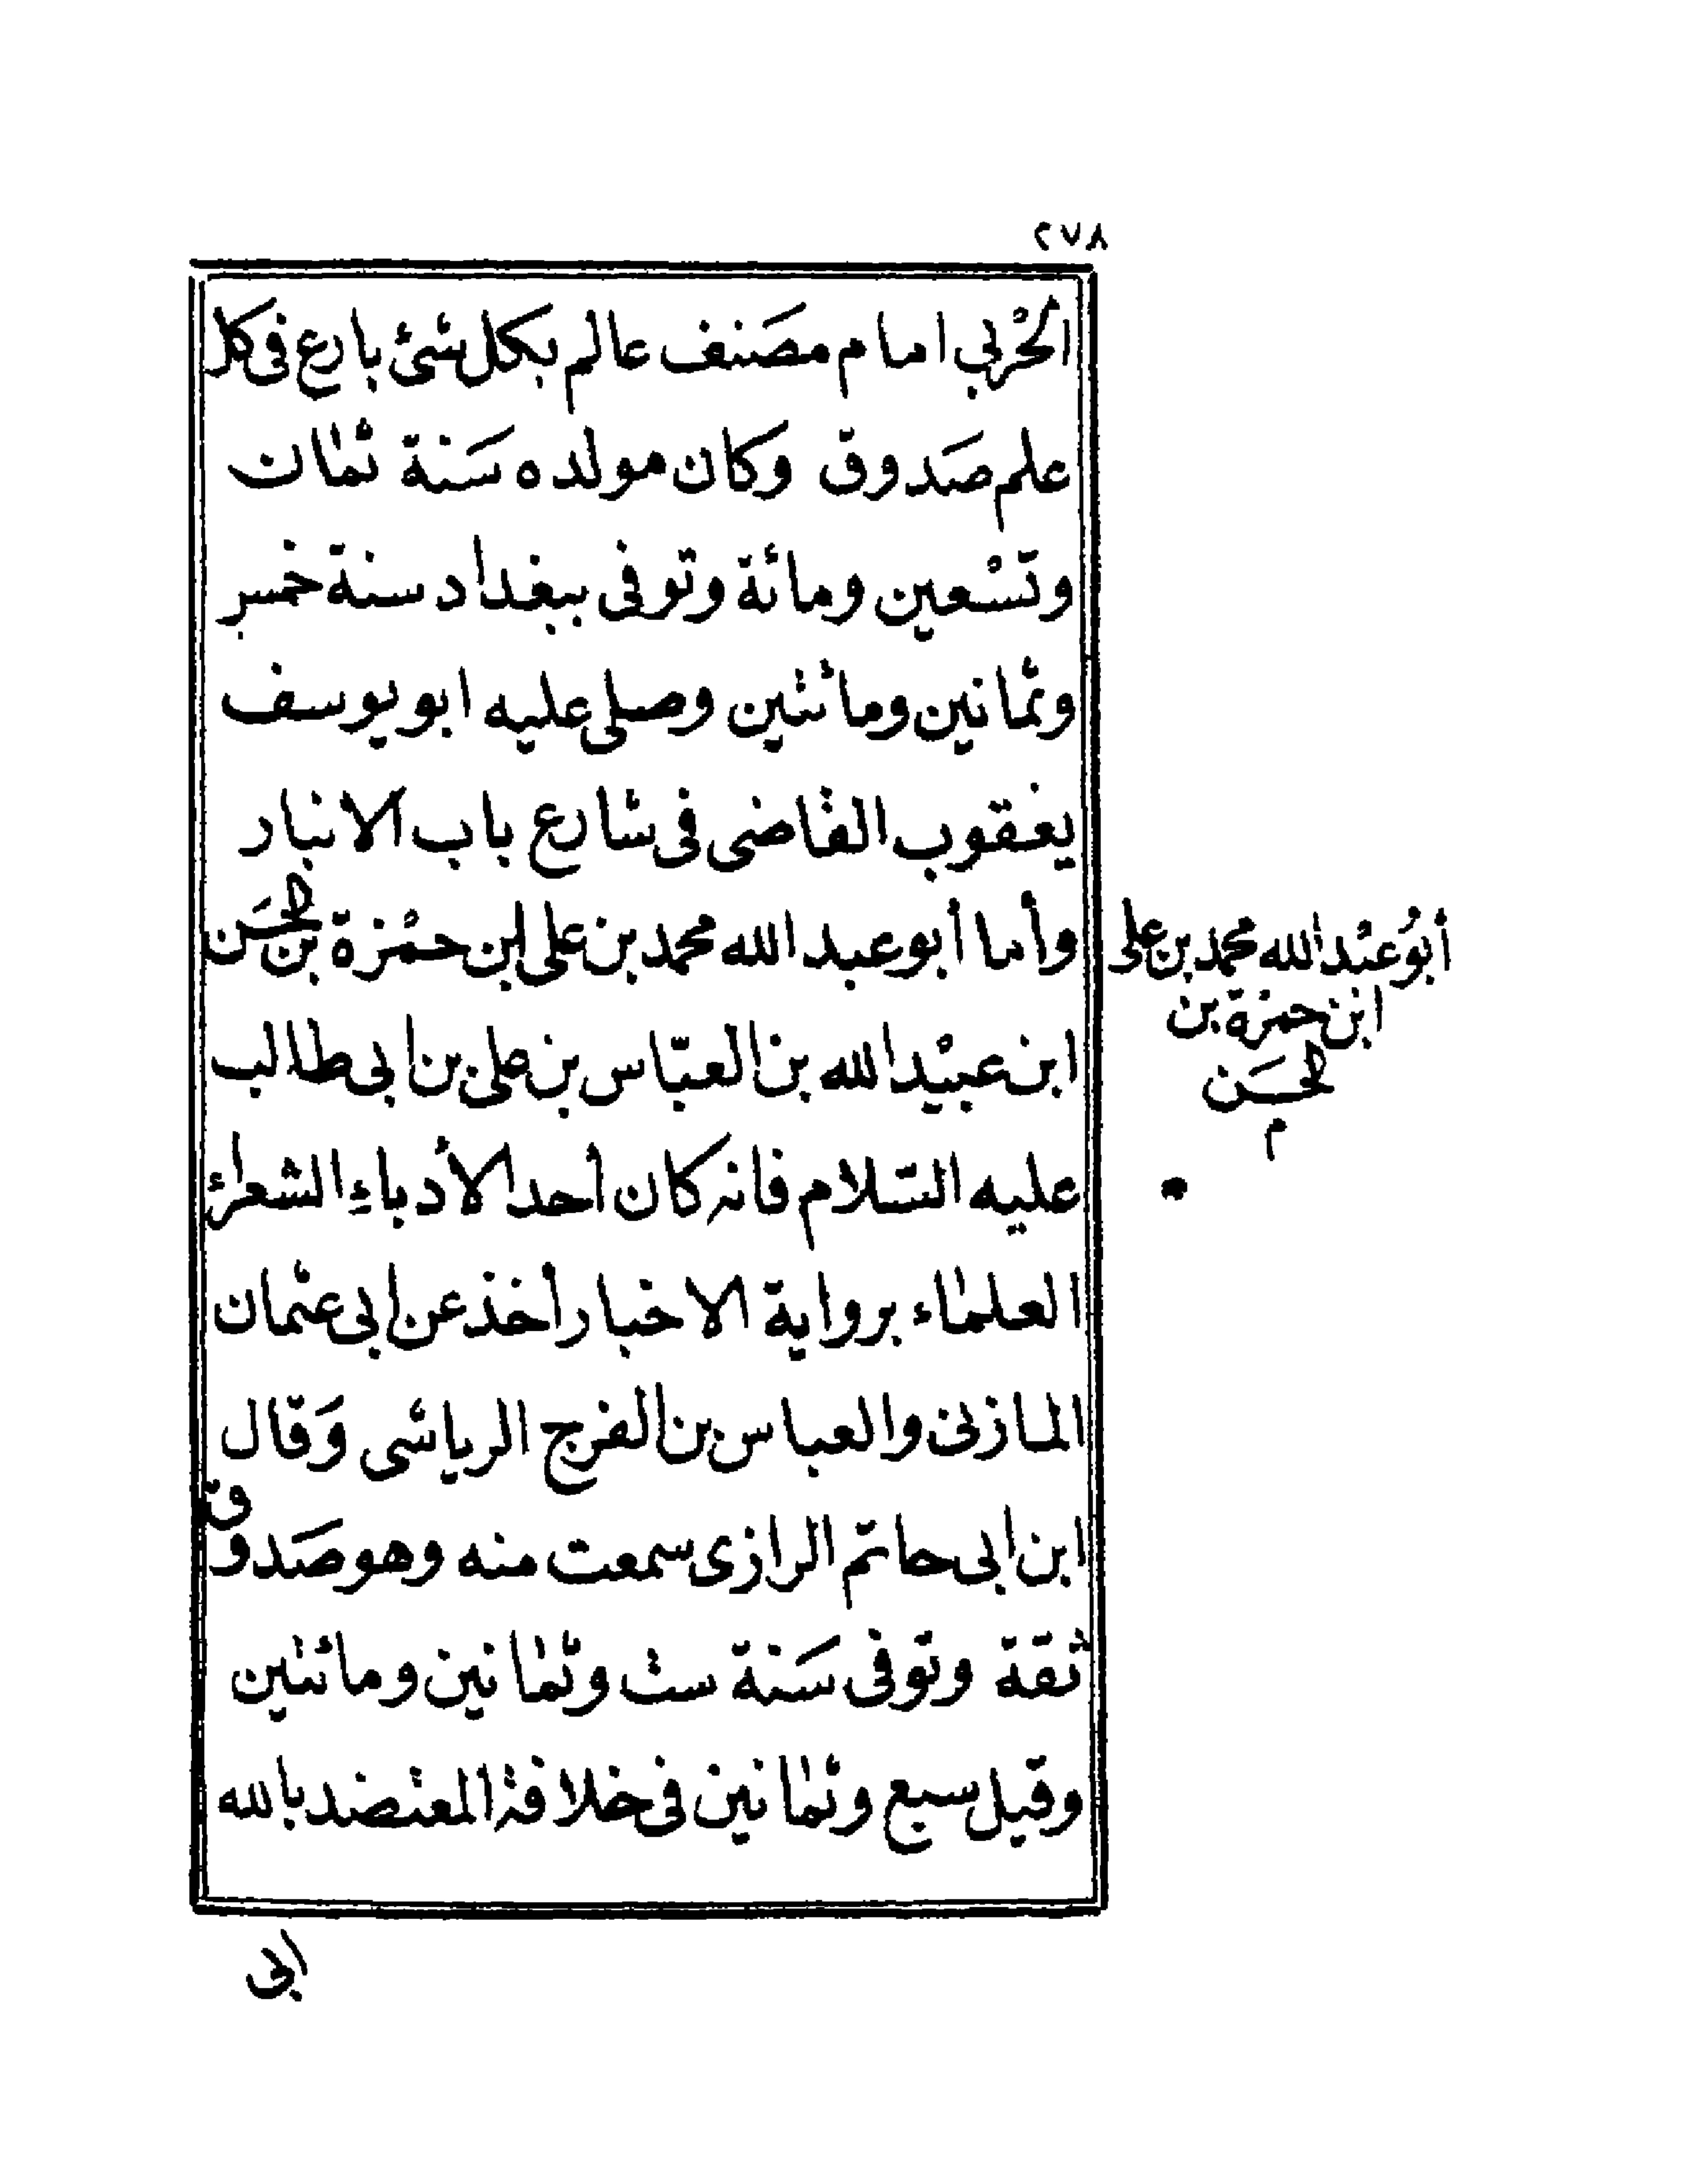 ٢٧٨
الحْربي امام مصَنف عالم بكل شئ بارع فى كل
علم صَدوق وكان مولده سَنة ثمان
وتسْعين ومائة وتوفى ببغداد سنة خمس
وثمانين ومائتين وصلى عليه ابو يوسف
يعقوب القاضى فى شارع باب الانبار
وأما أبو عبد الله محمد بن على ابن حمْزة بن الحسَن
ابن عبيْد الله بن العبّاس بن على بن ابى طالب
عليه السّلام فانه كان أحد الأدباءِ الشعراء
العلماء برواية الاخبار أخذ عن ابى عثمان
المازنى والعباس بن الفرج الرياشى وَقال
ابن ابى حاتم الرازى سمعت منه وهو صَدوق
ثقة وتوفى سَنة ست وثمانين ومائتين
وقيل سبع وثمانين فى خلافة المعتضد بالله
ابى
أبوُ عبْد الله محمد بن على
ابن حمزة بن
الحسَن
م